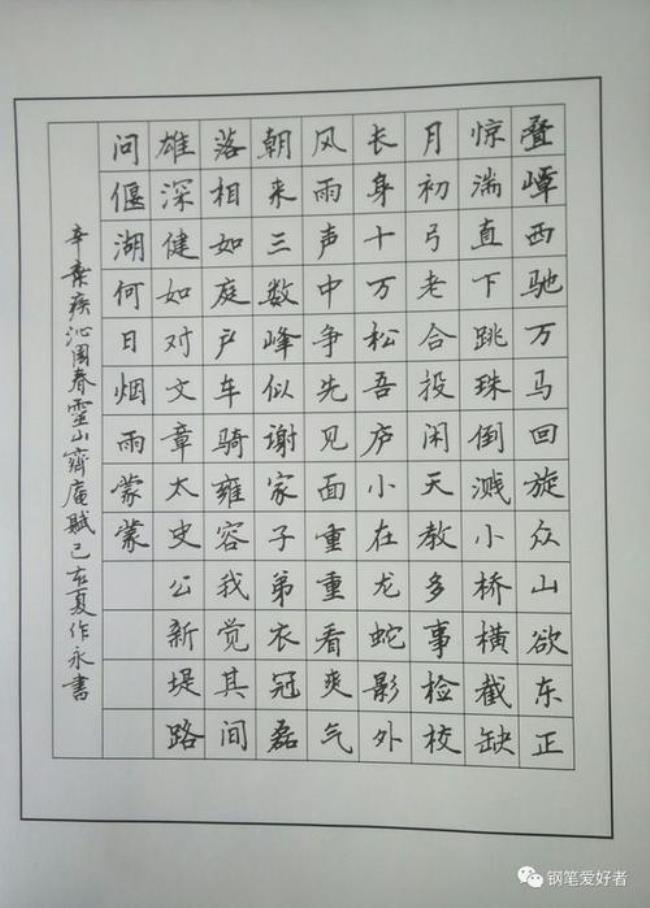 叠嶂西驰万马回旋众山欲东正
惊湍直下跳珠倒溅小桥横截缺
月初弓老合投闲天教多事检校
长身十万松吾庐小在龙蛇影外
风雨声中争先见面重重看爽气
朝来三数峰似谢家子弟衣冠磊
落相如庭户车骑雍容我觉其间
雄深健如对文章太史公新堤路
问偃湖何日烟雨蒙蒙
辛棄疾沁園春靈山齊庵賦己亥夏作永書
钢笔爱好者